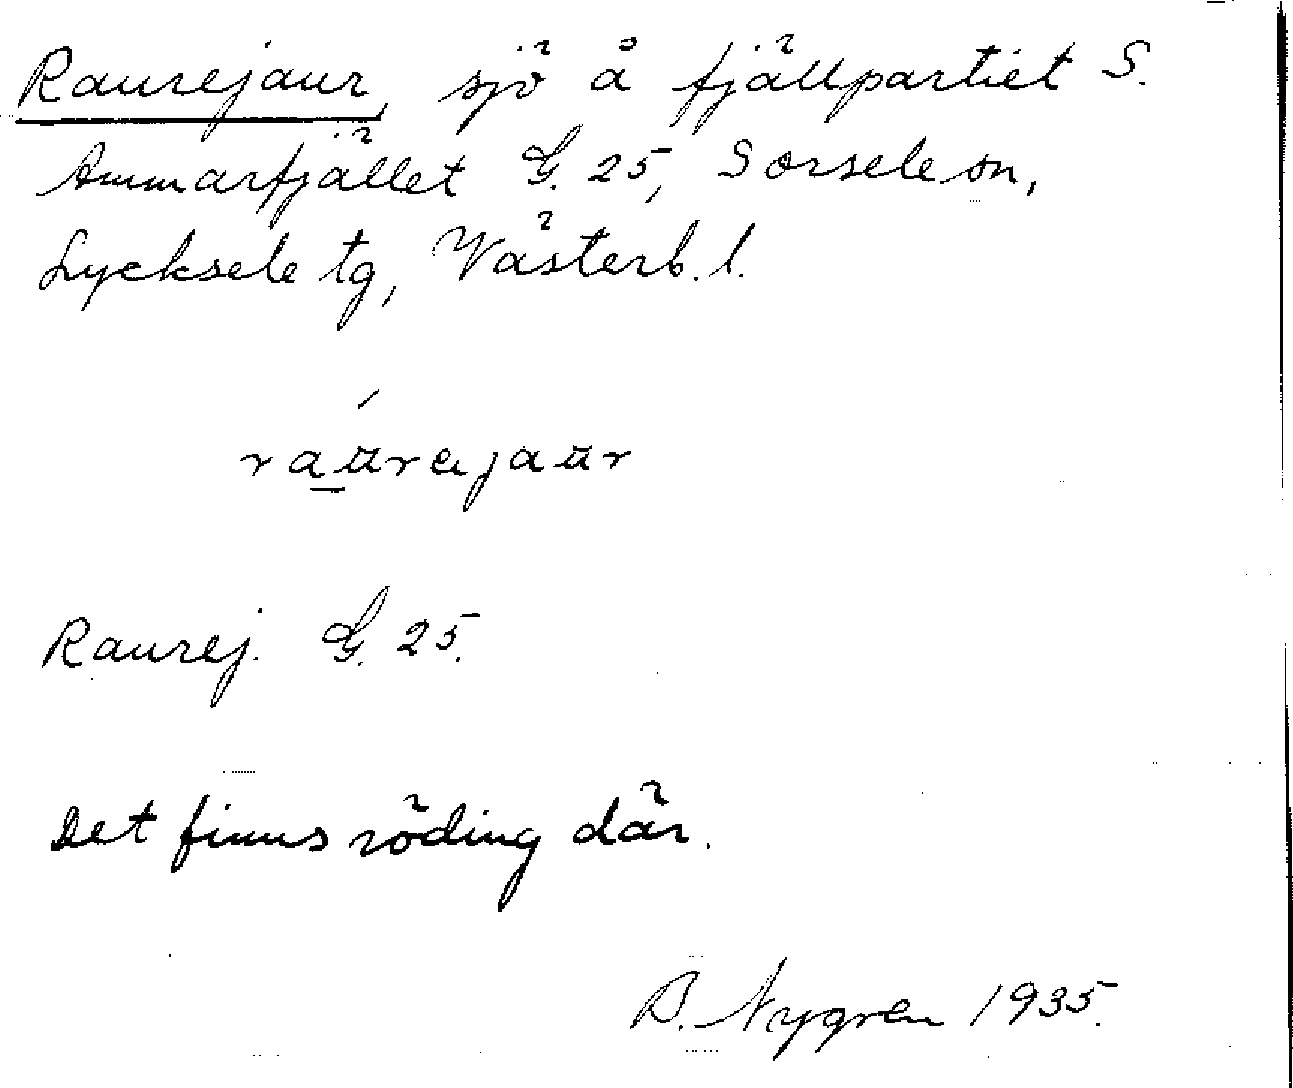 Raurejaur, sjö å fjällpartiet S.
Ammarfjället G. 25, Sorsele sn,
Lycksele tg, Västerb. l.
raurejaur
Raurej. G. 25.
Det finns röding där.
B. Nygren 1935.